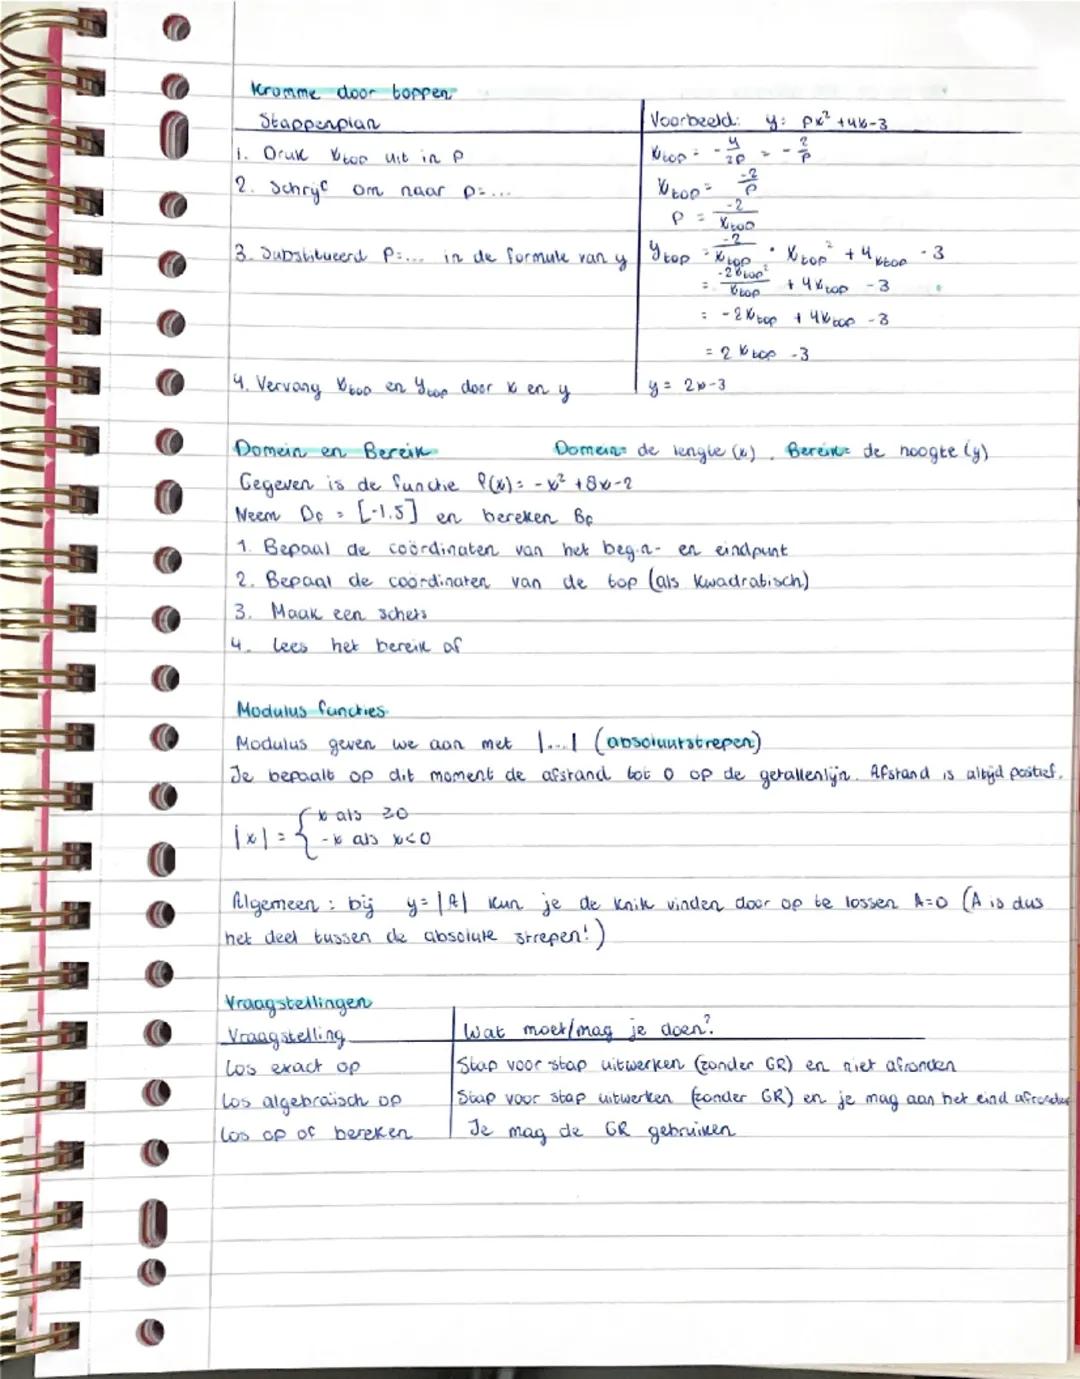 Kromme door toppen
Stappenplan
Voorbeeld: y: px² +4x-3
1. Druk xtop uit in p
xtop = -4/2p = -2/p
2. Schrijf om naar p=...
xtop = -2/p
p = -2/xtop
3. Substitueerd p=... in de formule van y
ytop = -2/xtop · xtop² + 4xtop - 3
= -2xtop²/xtop + 4xtop - 3
= -2xtop + 4xtop - 3
= 2xtop - 3
4. Vervang xtop en ytop door x en y
y = 2x-3
Domein en Bereik Domein= de lengte (x). Bereik= de hoogte (y)
Gegeven is de functie f(x) = -x² +8x-2
Neem Df = [-1.5] en bereken Bf
1. Bepaal de coördinaten van het begin- en eindpunt
2. Bepaal de coördinaten van de top (als kwadratisch)
3. Maak een schets
4. Lees het bereik af
Modulus functies
Modulus geven we aan met |...| (absoluutstrepen)
Je bepaalt op dit moment de afstand tot 0 op de getallenlijn. Afstand is altijd positief.
|x| = { x als ≥0
-x als x<0
Algemeen: bij y=|A| kun je de knik vinden door op te lossen A=0 (A is dus
het deel tussen de absolute strepen!)
Vraagstellingen
Vraagstelling Wat moet/mag je doen?
Los exact op Stap voor stap uitwerken (zonder GR) en niet afronden
Los algebraïsch op Stap voor stap uitwerken (zonder GR) en je mag aan het eind afronden
Los op of bereken Je mag de GR gebruiken